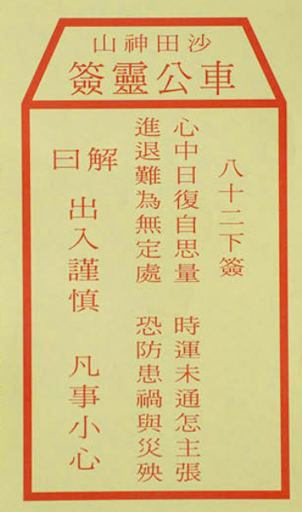 沙田神山
車公靈簽
八十二下簽
心中日復自思量 時運未通怎主張
進退難為無定處 恐防患禍與災殃
解曰
出入謹慎 凡事小心